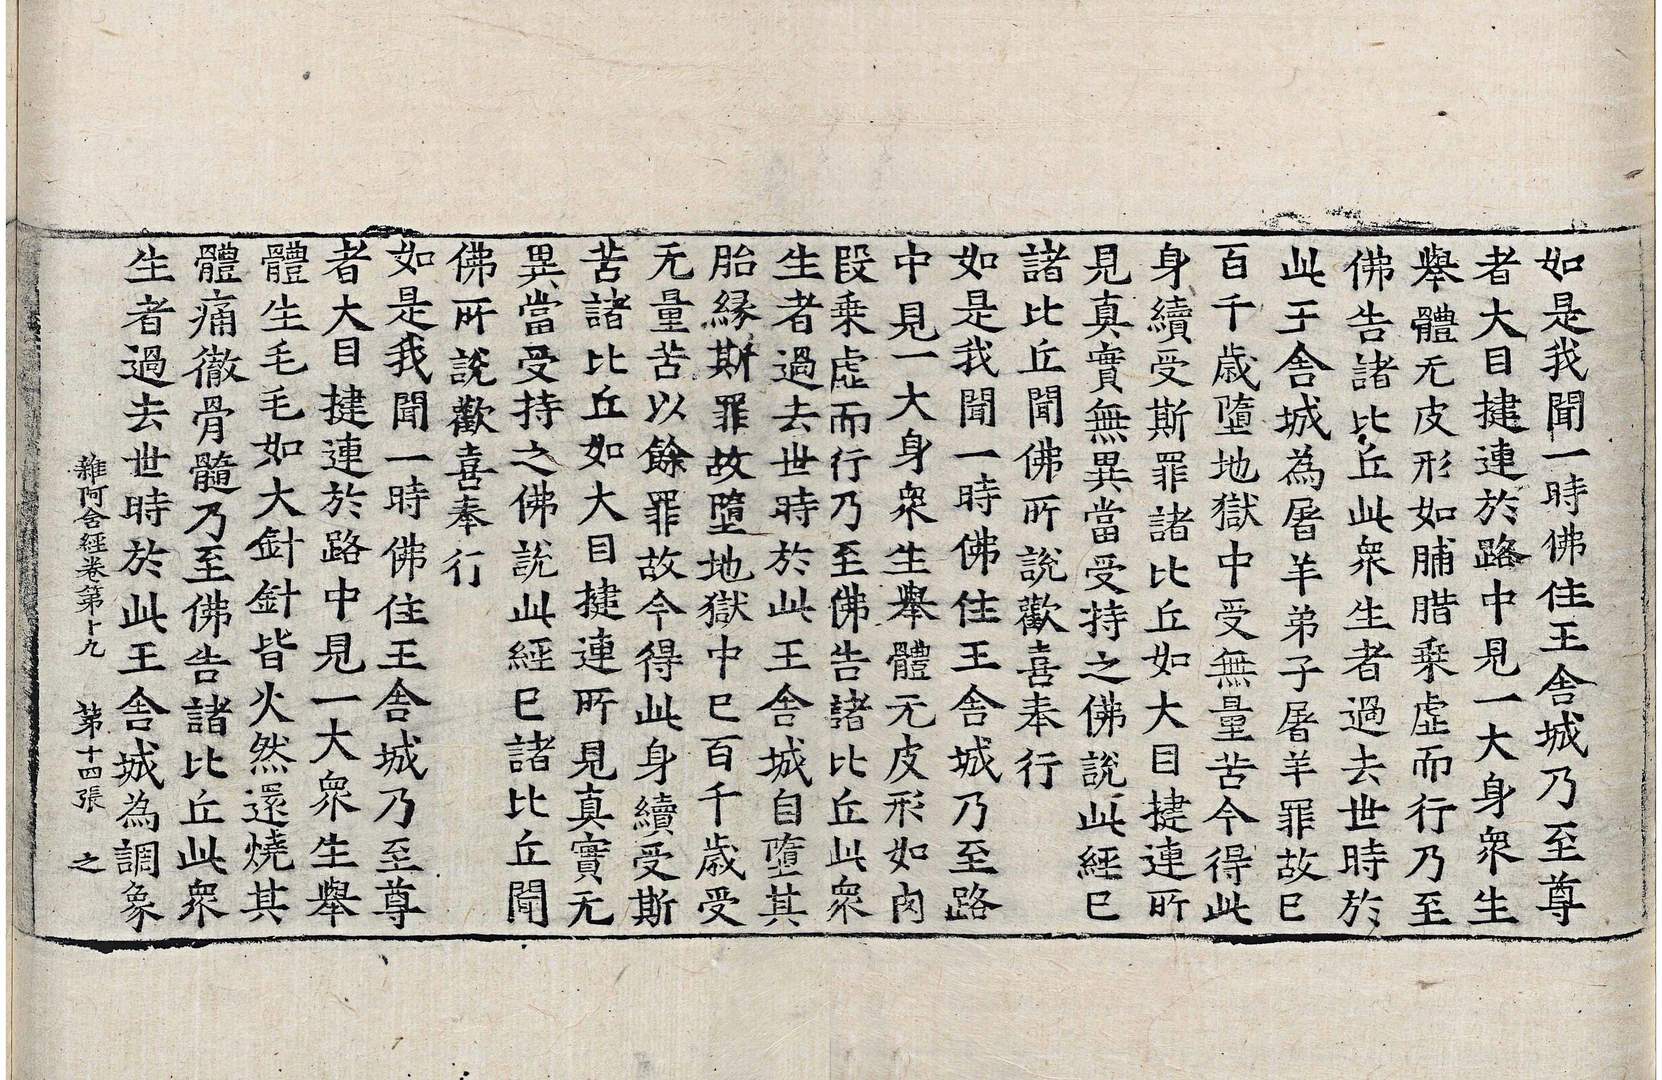 如是我聞一時佛住王舍城乃至尊
者大目揵連於路中見一大身衆生
舉體无皮形如脯腊乗虛而行乃至
佛告諸比丘此衆生者過去世時於
此王舍城為屠羊弟子屠羊罪故已
百千歳墮地獄中受無量苦今得此
身續受斯罪諸比丘如大目揵連所
見真實無異當受持之佛說此經已
諸比丘聞佛所說歡喜奉行
如是我聞一時佛住王舍城乃至路
中見一大身衆生舉體无皮形如肉
段乗虛而行乃至佛告諸比丘此衆
生者過去世時於此王舍城自墮其
胎緣斯罪故墮地獄中已百千歳受
无量苦以餘罪故今得此身續受斯
苦諸比丘如大目揵連所見真實无
異當受持之佛說此經已諸比丘聞
佛所說歡喜奉行
如是我聞一時佛住王舍城乃至尊
者大目揵連於路中見一大衆生舉
體生毛毛如大針針皆火然還燒其
體痛徹骨髓乃至佛告諸比丘此衆
生者過去世時於此王舍城為調象
雜阿含經卷第十九 第十四張 之